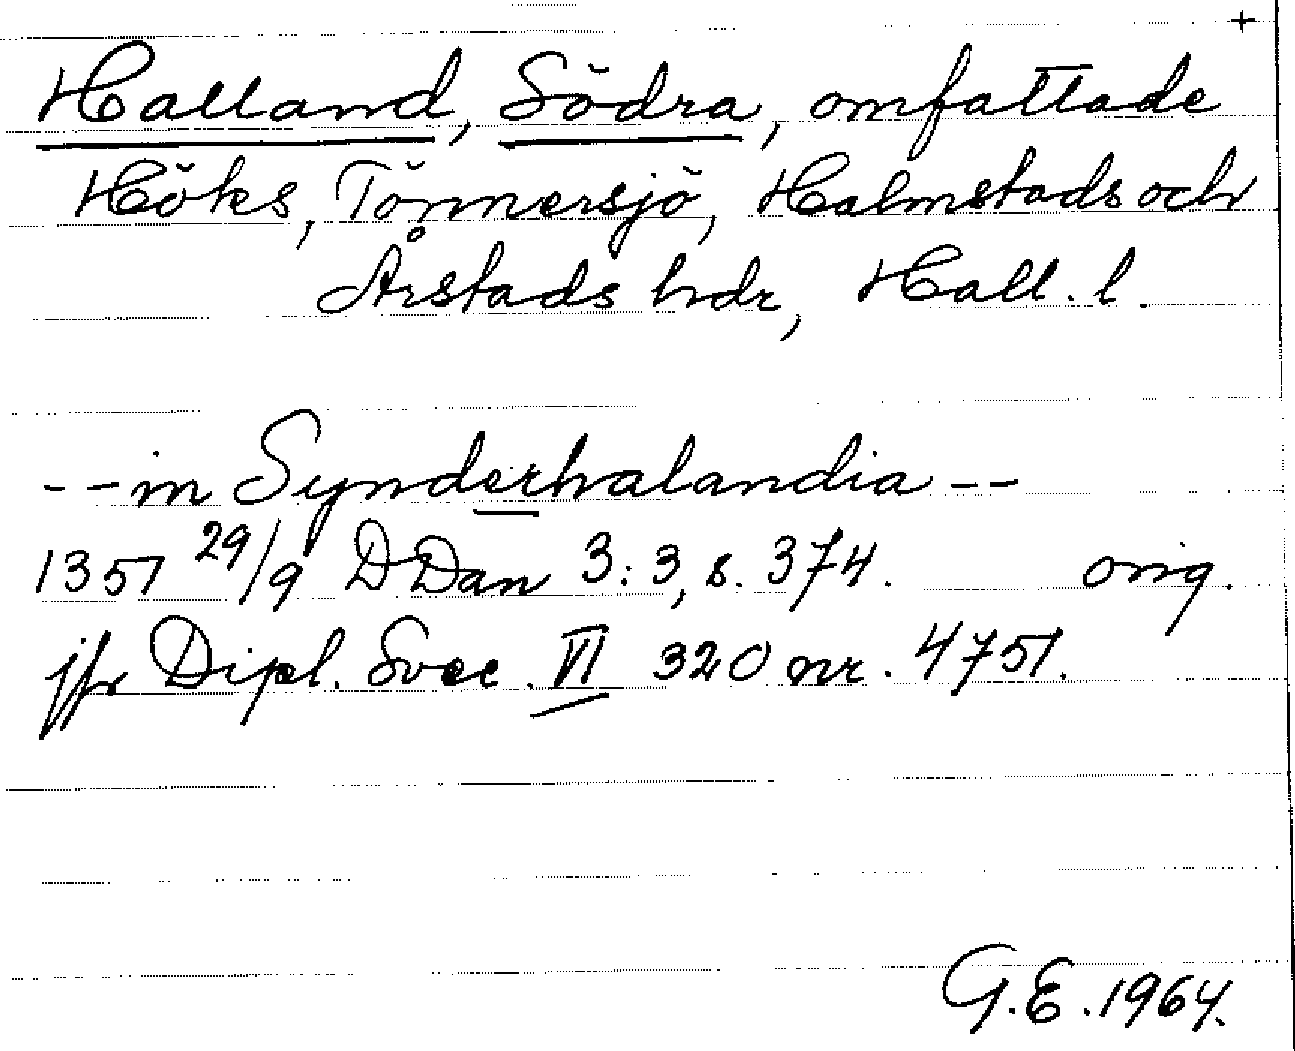 +
Halland, Södra, omfattade
Höks, Tönnersjö, Halmstads och
Årstads hrdr, Hall. l.
-- in Synderhalandia --
1351 29/9 DDan 3:3, s. 374. orig.
jfr Dipl. Svec. VI 320 nr. 4751.
G.E. 1964.